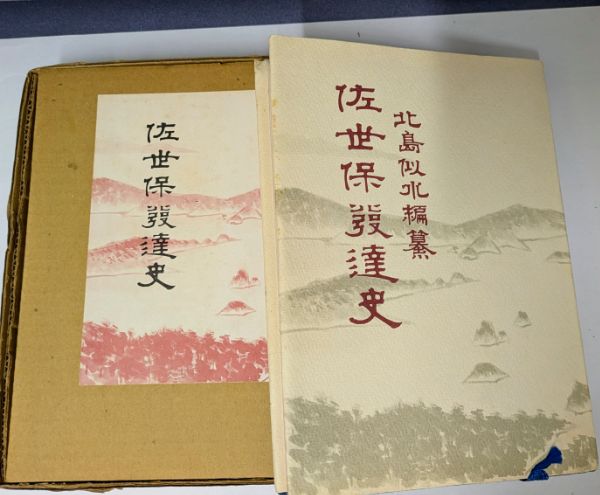 佐世保發達史
北島似水編纂
佐世保發達史